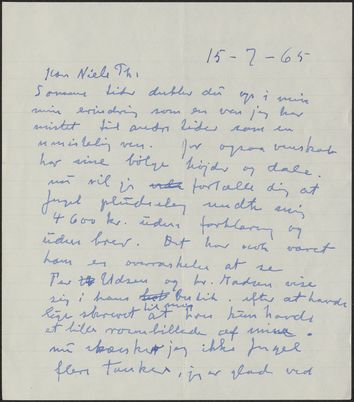 15-7-65
Kære Niels Th:
Somme tider dukker du op i min
min erindring som en ven jeg har
mistet til andre tider som en
umistelig ven. Jo ogsaa venskab
har sine bølge højder og dale.
nu vil jeg fortælle dig at
Jugel pludselig sendte mig
4600 kr. uden forklaring og
uden brev. Det har nok været
ham en overraskelse at se
Per Udsen og hr. Madsen vise
sig i hans butik. efter at havde
lige skrevet til mig at han kun havde
et lille rosenbillede af mine.
nu skænker jeg ikke Jugel
flere tanker, jeg er glad ved